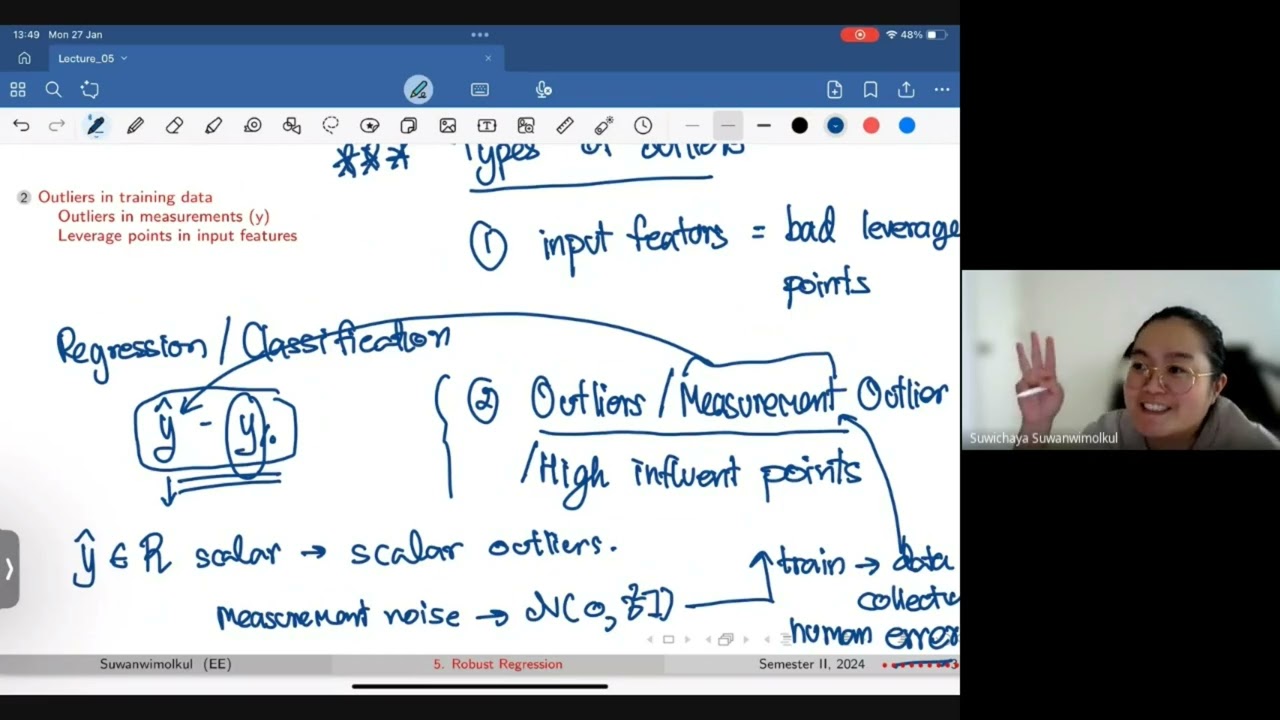 13:49 Mon 27 Jan
48%
Lecture_05
*** Types of outliers
2 Outliers in training data
Outliers in measurements (y)
Leverage points in input features
① input feators = bad leverage
points
Regression / Classification
ŷ - y
② Outliers / Measurement Outlier
/ High influent points
ŷ ∈ R scalar → scalar outliers.
measurement noise → N(0, I)
train → data
collectio
human error
Suwanwimolkul (EE)
5. Robust Regression
Semester II, 2024
3
Suwichaya Suwanwimolkul